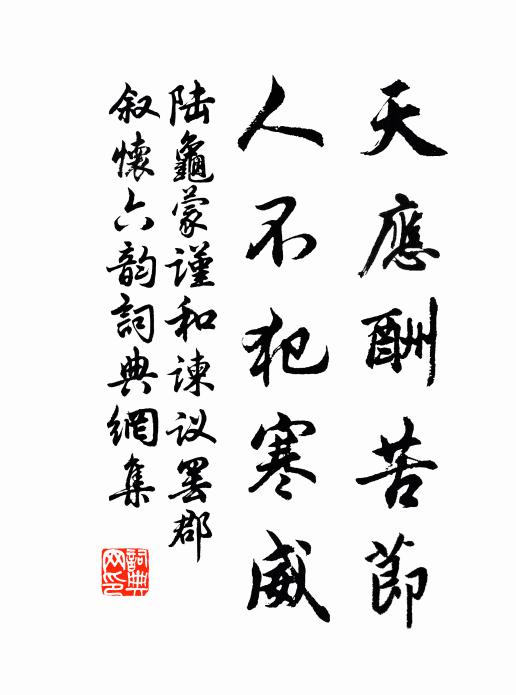 天應酬苦節
人不犯寒威
陆龜蒙谨和諌议罢郡
叙懷六韵詞典網集
詞典
网印